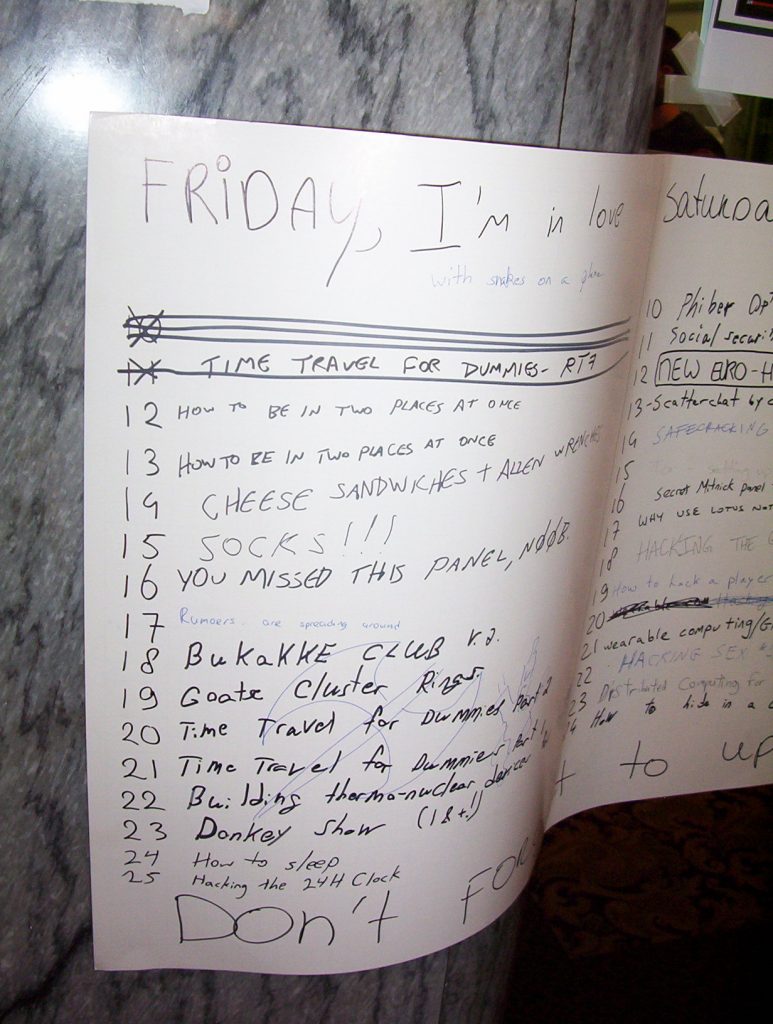 FRiDAY, I'm in love
with snakes on a plane
11 TIME TRAVEL FOR DUMMIES- RT7
12 HOW TO BE IN TWO PLACES AT ONCE
13 HOW TO BE IN TWO PLACES AT ONCE
14 CHEESE SANDWICHES + ALLEN WRENCHES
15 SOCKS!!!
16 YOU MISSED THIS PANEL, NØØB.
17 Rumoers are spreading around
18 BUKAKKE CLUB
19 Goatse Cluster Rings
20 Time Travel for Dummies Part 2
21 Time Travel for Dummies Part 1
22 Building thermo-nuclear devices
23 Donkey Show (18+!)
24 How to sleep
25 Hacking the 24H Clock
DON't FOR
Saturda
10 Phiber Opt
11 Social securi
12 NEW EURO-H
13-Scatterchat by
14 SAFECRACKING
15
16 Secret Mitnick panel
17 WHY USE LOTUS NOT
18 HACKING THE
19 How to hack a player
20
21 wearable computing/G
22 HACKING SEX
23 Distributed Computing for
How to hide in a
t to up